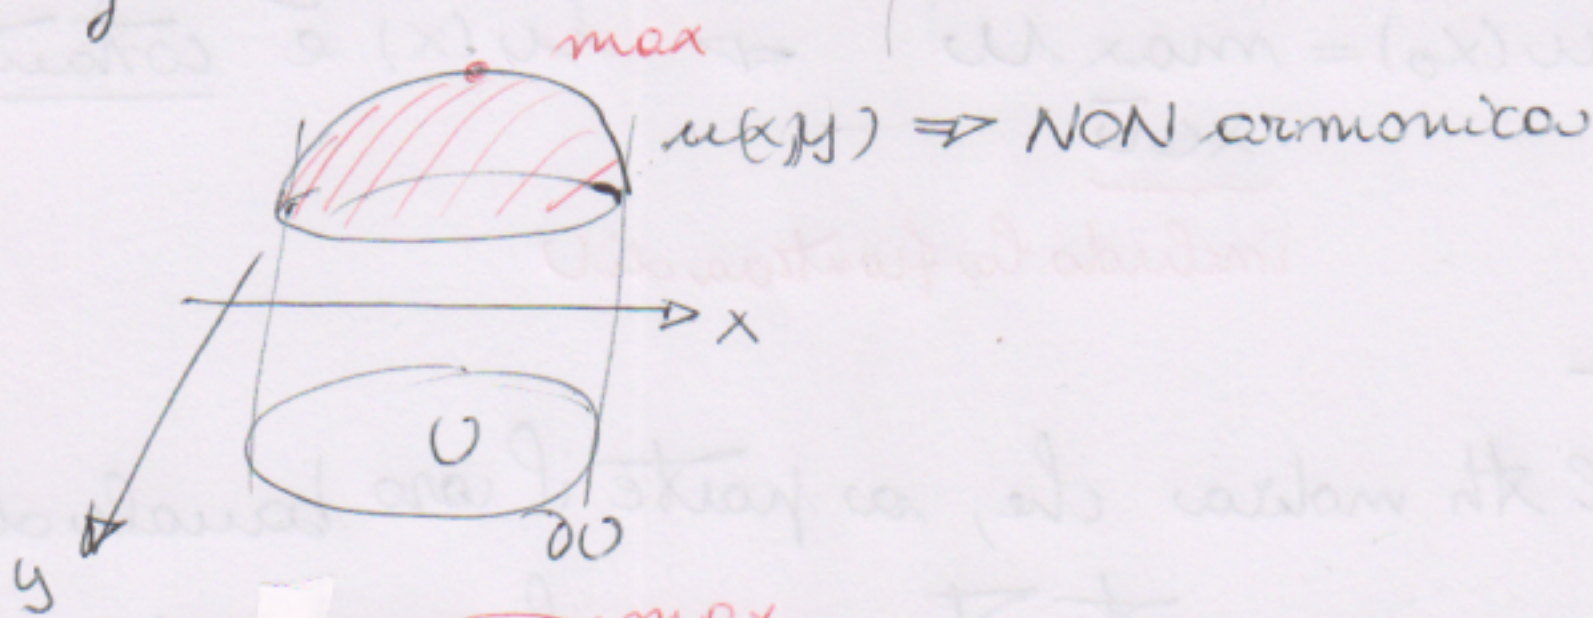 max
u(x,y) ⇒ NON armonica
x
U
∂U
y
max